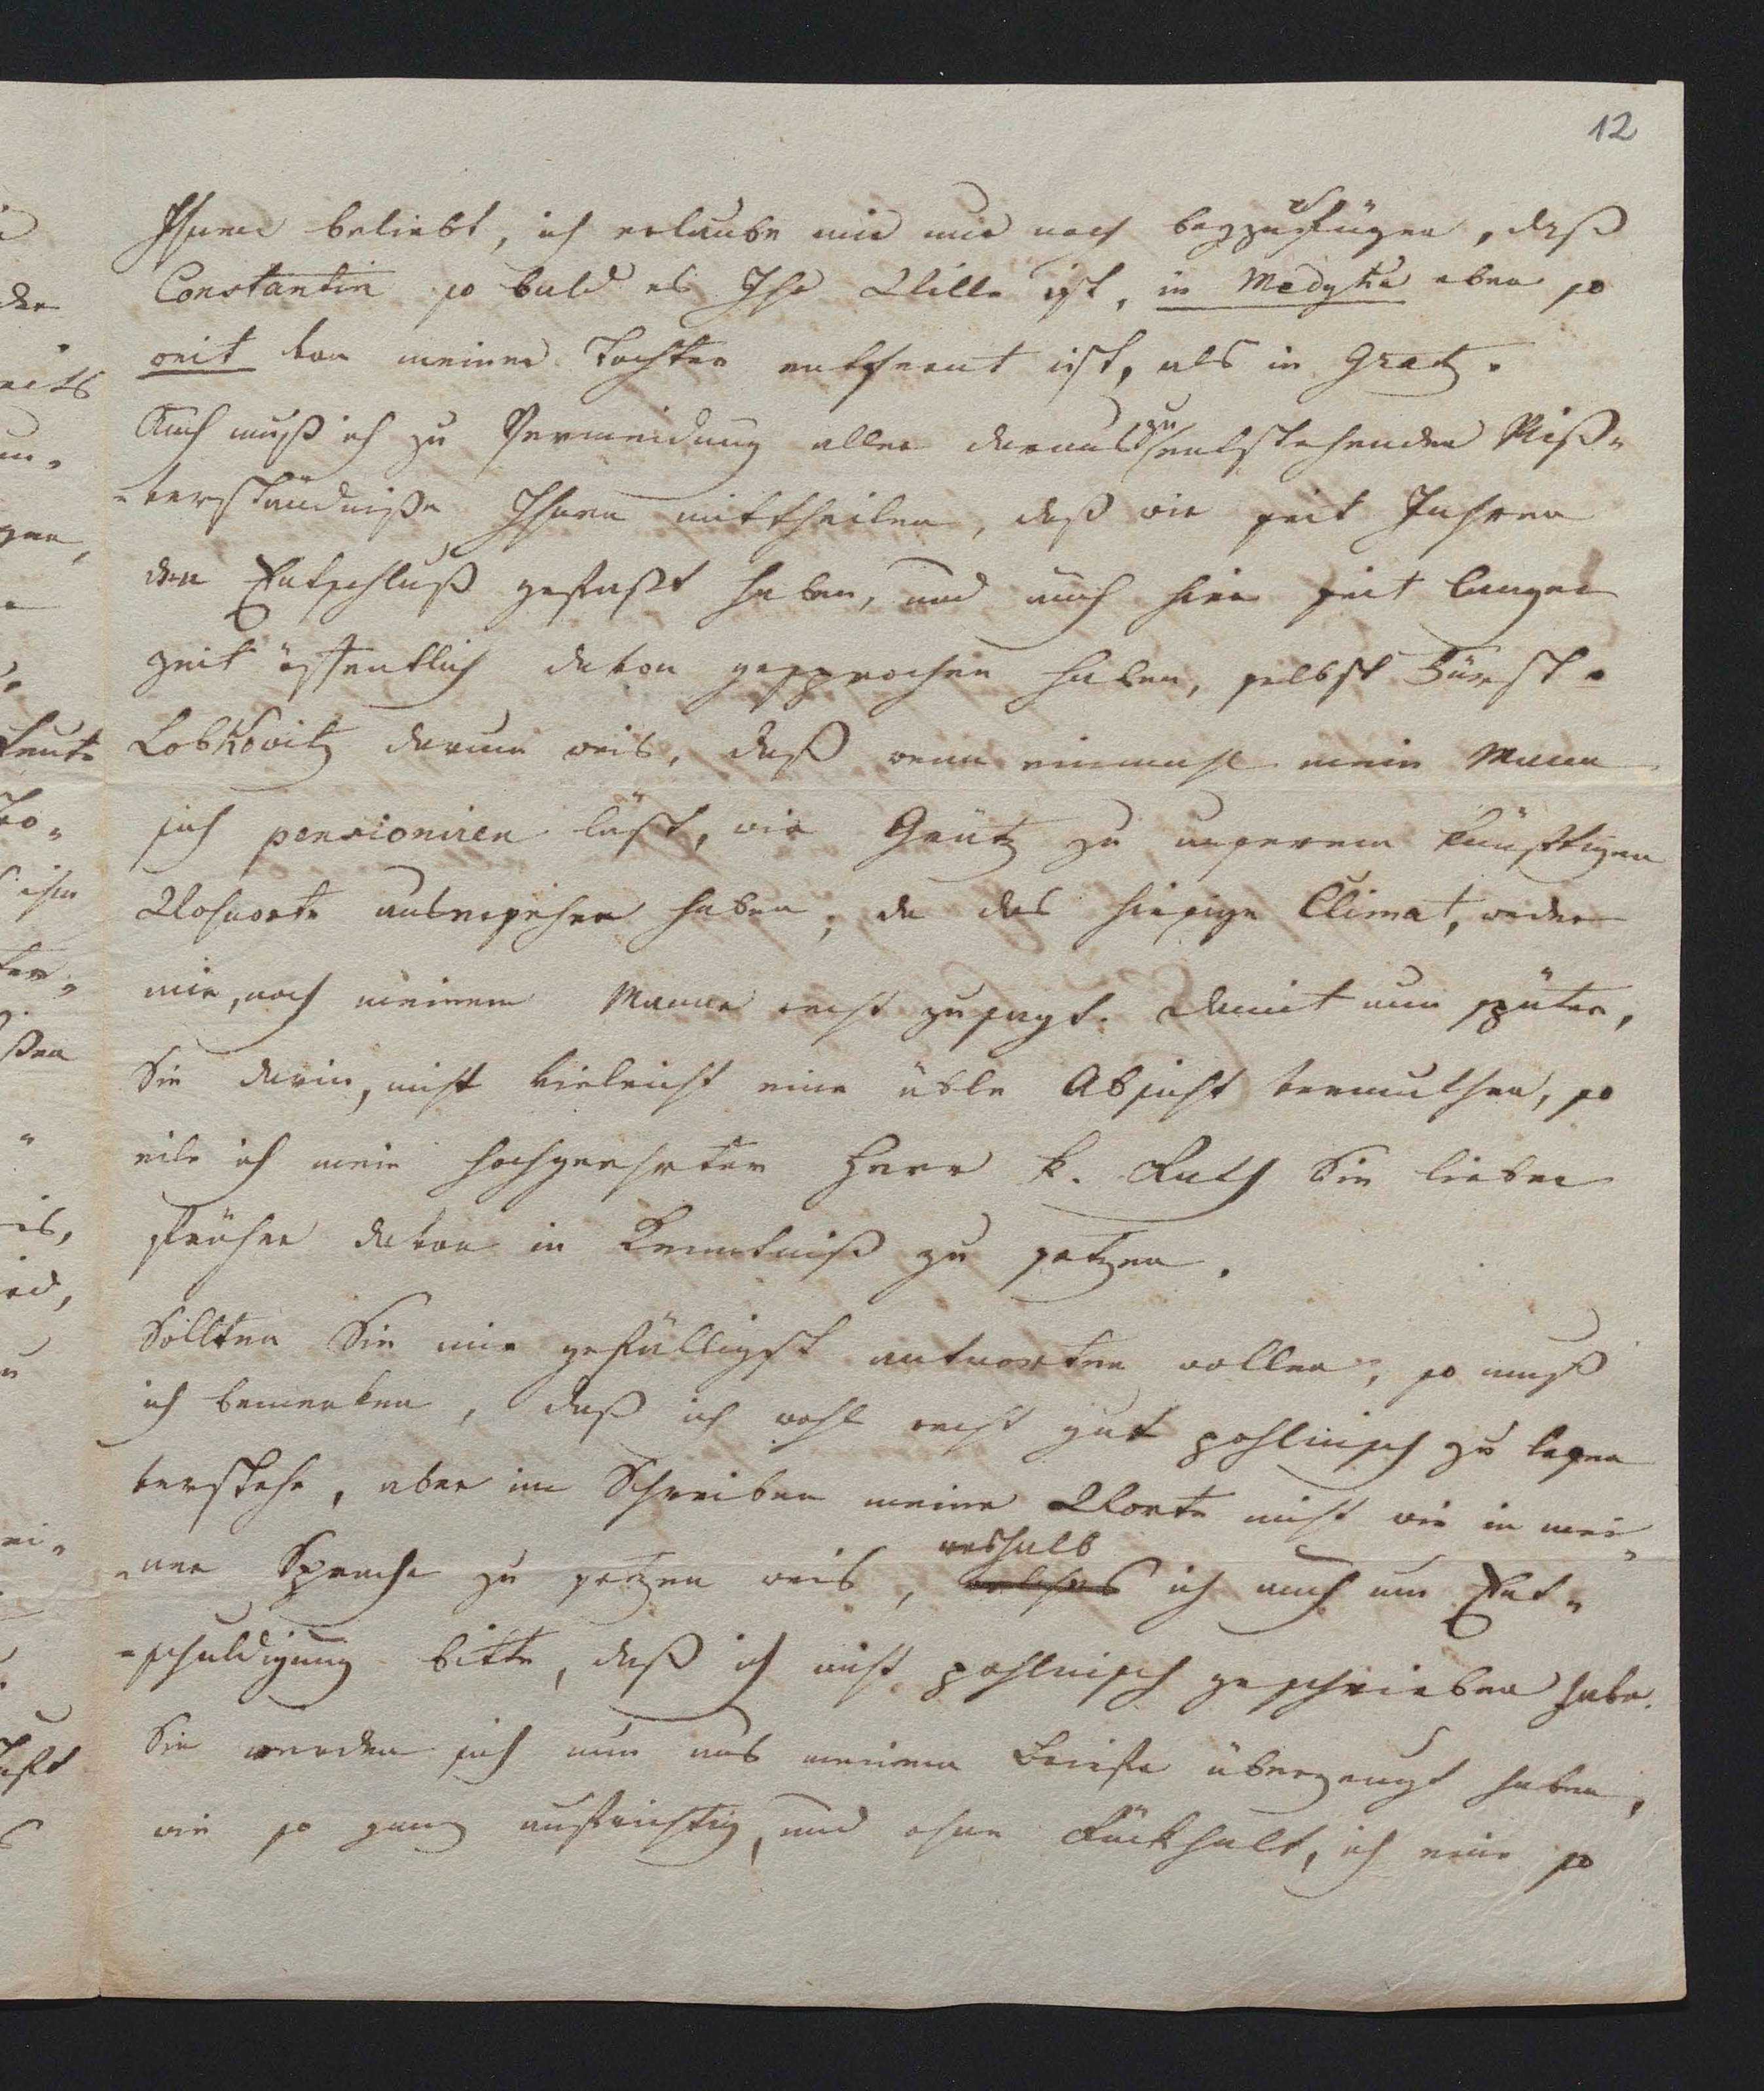 12
Ihnen beliebt, ich erlaube mir nur noch beyzufügen, daß
Constantin so bald es Ihr Wille ist, in Medyka eben so
weit von meiner Tochter entfernt ist, als in Gratz.
Auch muß ich zu Vermeidung aller daraus zu entstehenden Miß-
-verständniße Ihnen mittheilen, daß wir seit Jahren
den Entschluß gefaßt haben, und auch hier seit langer
Zeit öffentlich davon gesprochen haben, selbst Fürst
Lobkowitz darum weis, daß wenn einmahl mein Mann
sich pensioniren läst, wir Grätz zu unserem künftigen
Wohnorte ausersehen haben, da das hiesige Climat, weder
mir, noch meinem Manne recht zusagt. Damit nun später,
Sie darin, nicht vieleicht eine üble Absicht vermuthen, so
eile ich mein hochgeehrter Herr k. Rath Sie lieber
früher davon in Kenntniß zu setzen.
Sollten Sie mir gefälligst antworten wollen, so muß
ich bemerken, daß ich wohl recht gut pohlnisch zu lesen
verstehe, aber im Schreiben meine Worte nicht wie in mei-
-ner Sprache zu setzen weis, welches weshalb ich auch um Ent-
-schuldigung bitte, daß ich nicht pohlnisch geschrieben habe.
Sie werden sich nun aus meinem Briefe überzeugt haben,
wie so ganz aufrichtig, und ohne Rückhalt, ich eine so